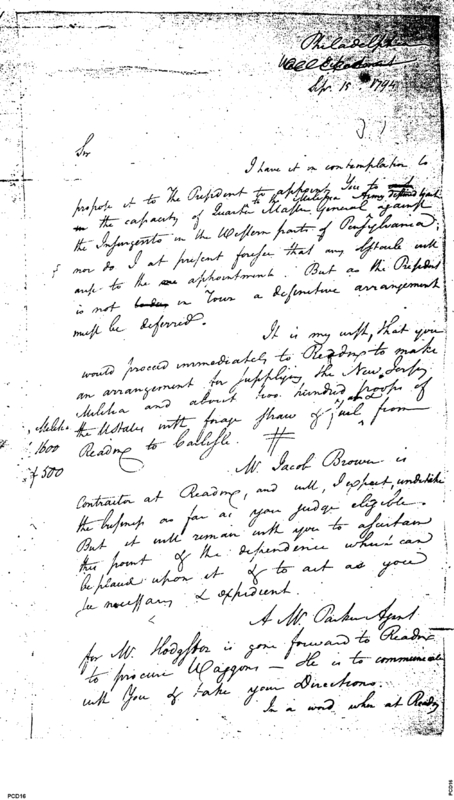 Philadelphia
War Department
Sep. 15. 1794
Sir
I have it in contemplation to
propose it to The President to appoint You to
in the capacity of Quarter Master General to the Militia Army destined to act against
the Insurgents in the Western parts of Pennsylvania;
nor do I at present foresee that any obstacle will
arise to the appointment. But as the President
is not in Town a definitive arrangement
must be deferred.
It is my wish, that you
would proceed immediately to Reading to make
an arrangement for supplying the New Jersey
Militia and about two hundred troops of
the UStates with forage straw & fuel from
Reading to Carlisle. #
Militia
1600
500
Mr. Jacob Brown is
Contractor at Reading, and will, I expect, undertake
the business as far as you judge eligible.
But it will remain with you to ascertain
this point & the dependence which can
be placed upon it & to act as you
be necessary & expedient.
A Mr. Parker Agent
for Mr. Hodgsdon is gone forward to Reading
to procure Waggons — He is to communicate
with You & take your Directions.
In a word when at Reading
PCD16
PCD16